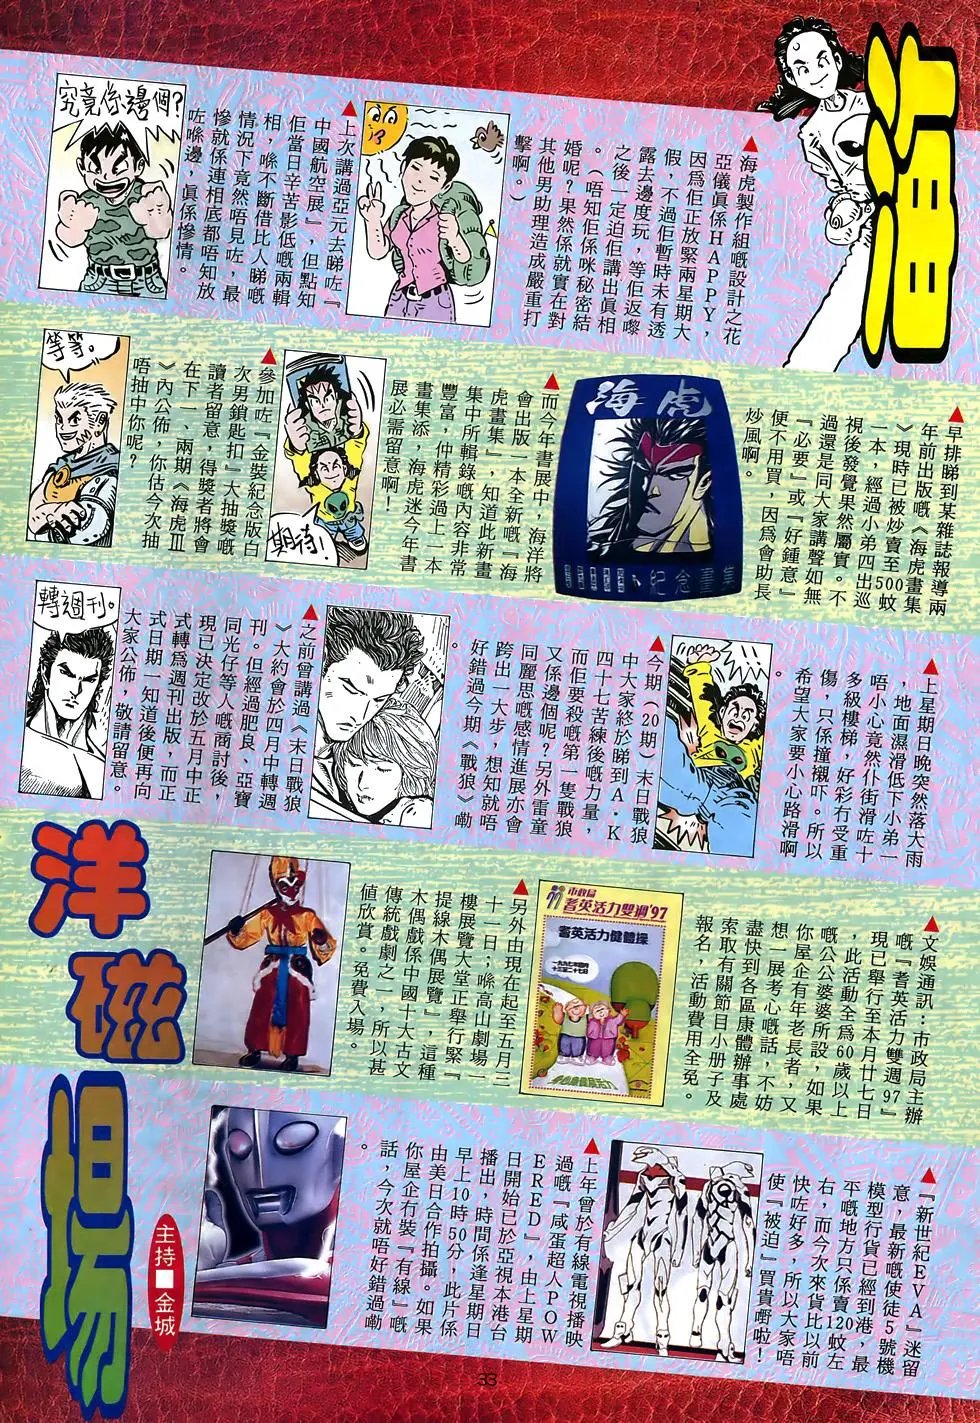 海
洋
磁
場
主持■金城
▲海虎製作組嘅設計之花
亞儀眞係HAPPY，
因爲佢正放緊兩星期大
假，不過佢暫時未有透
露去邊度玩，等佢返嚟
之後一定迫佢講出眞相
。（唔知佢係咪秘密結
婚呢？果然係就實在對
其他男助理造成嚴重打
擊啊。）
▲上次講過亞元去睇咗『
中國航空展』，但點知
佢當日辛苦影低嘅兩輯
相，喺不斷借比人睇嘅
情況下竟然唔見咗，最
慘就係連相底都唔知放
咗喺邊，眞係慘情。
究竟係邊個？
▲早排睇到某雜誌報導兩
年前出版嘅《海虎畫集
》現時已被炒賣至500蚊
一本，經過小弟四出巡
視後發覺果然屬實。不
過還是同大家講聲如無
『必要』或『好鍾意』
便不用買，因爲會助長
炒風啊。
海虎
紀念畫集
▲而今年書展中，海洋將
會出版一本全新嘅『海
虎畫集』，知道此新畫
集中所輯錄嘅內容非常
豐富，仲精彩過上一本
畫集添，海虎迷今年書
展必需留意啊！
期待！
▲參加咗『金裝紀念版白
次男鎖匙扣』大抽獎嘅
讀者留意，得獎者將會
在下一、兩期《海虎Ⅲ
》內公佈，你估今次抽
唔抽中你呢？
等等。
▲上星期日晚突然落大雨
，地面濕滑低下小弟一
唔小心竟然仆街滑咗十
多級樓梯，好彩冇受重
傷，只係撞襯吓。所以
希望大家要小心路滑啊
。
▲今期（20期）末日戰狼
中大家終於睇到A·K
四十七苦練後嘅力量，
而佢要殺嘅第一隻戰狼
又係邊個呢？另外雷童
同麗思嘅感情進展亦會
跨出一大步，想知就唔
好錯過今期《戰狼》嘞
。
▲之前曾講過《末日戰狼
》大約會於四月中轉週
刊。但經過肥良、亞寶
同光仔等人嘅商討後，
現已決定改於五月中正
式轉爲週刊出版，而正
式日期一知道後便再向
大家公佈，敬請留意。
轉週刊。
▲文娛通訊：市政局主辦
嘅『耆英活力雙週'97』
現已舉行至本月廿七日
，此活動全爲60歲以上
嘅公公婆婆所設，如果
你屋企有年老長者，又
想一展考心嘅話，不妨
盡快到各區康體辦事處
索取有關節目小册子及
報名，活動費用全免。
市政局
耆英活力雙週'97
耆英活力健體操
▲另外由現在起至五月三
十一日；喺高山劇場一
樓展覽大堂正舉行緊『
提線木偶展覽』，這種
木偶戲係中國十大古文
傳統戲劇之一，所以甚
値欣賞。免費入場。
▲『新世紀EVA』迷留
意，最新嘅使徒5號機
模型行貨已經到港，最
平嘅地方只係賣120蚊左
右，而今次來貨比以前
快咗好多，所以大家唔
使『被迫』買貴嘢啦！
▲上年曾於有線電視播映
過嘅『咸蛋超人POW
ERED』，由上星期
日開始已於亞視本港台
播出，時間係逢星期日
早上10時50分，此片係
由美日合作拍攝。如果
你屋企冇裝『有線』嘅
話，今次就唔好錯過嘞
。
33